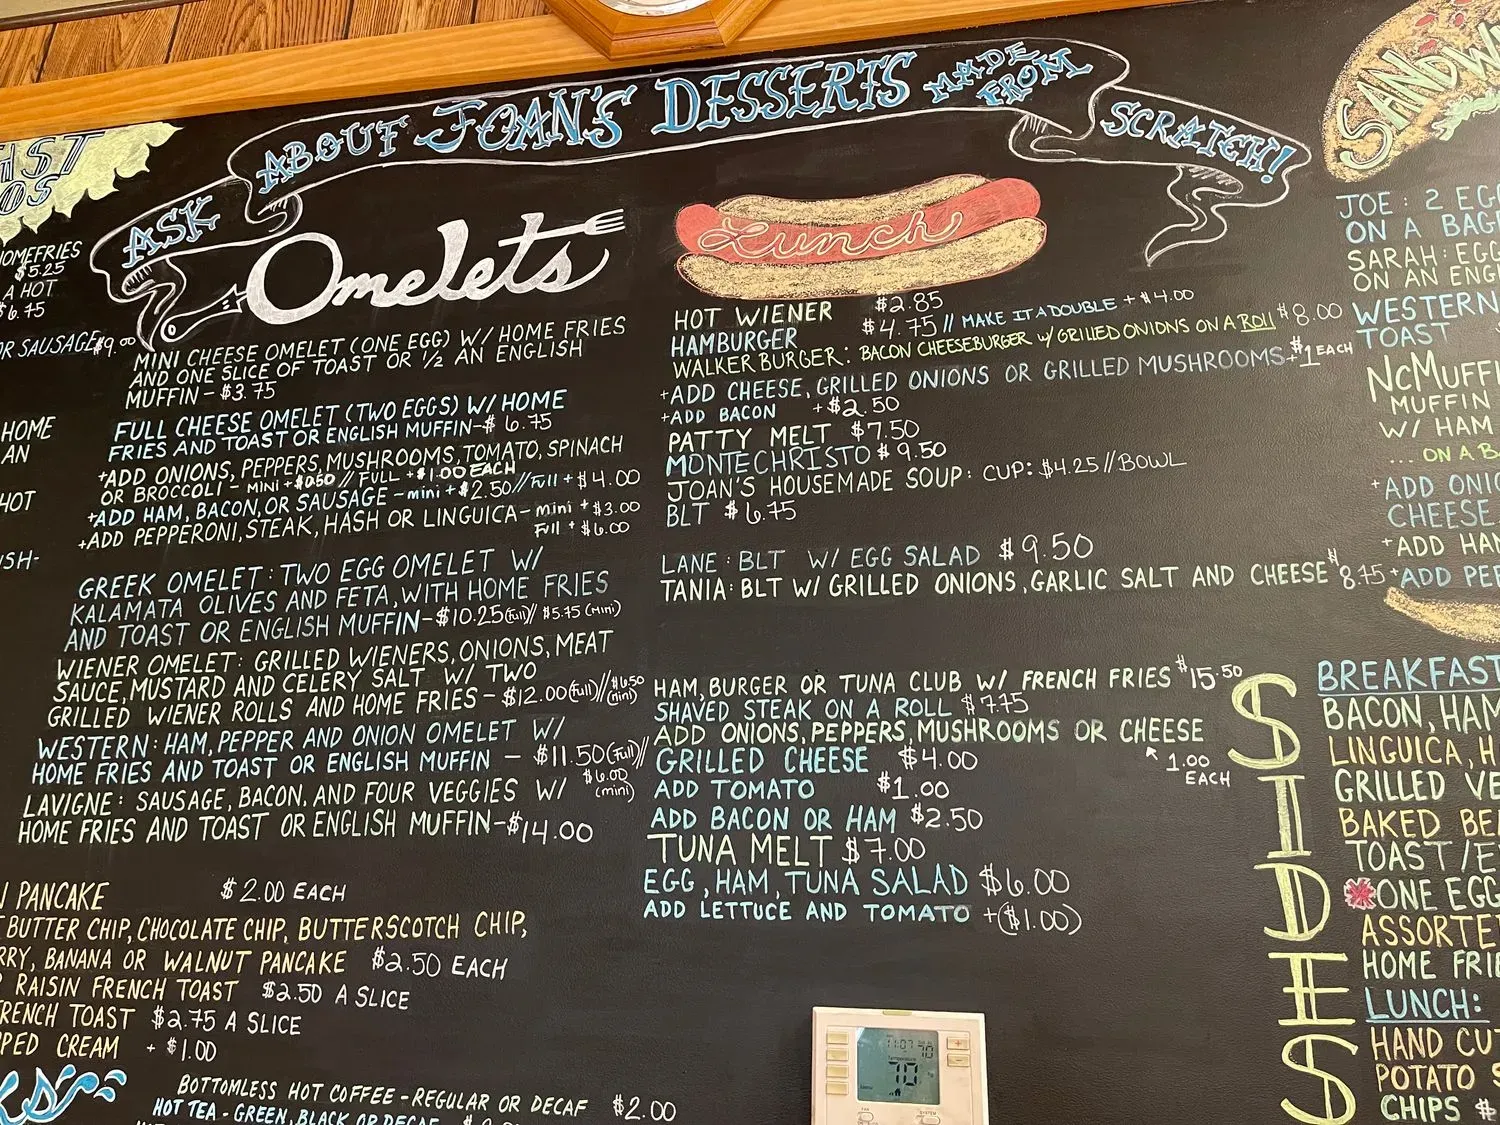 ASK ABOUT JOAN'S DESSERTS MADE FROM SCRATCH!
OMEFRIES
$5.25
A HOT
$6.75
OR SAUSAGE $9.00
HOME
AN
HOT
Omelets
MINI CHEESE OMELET (ONE EGG) W/ HOME FRIES
AND ONE SLICE OF TOAST OR 1/2 AN ENGLISH
MUFFIN - $3.75
FULL CHEESE OMELET (TWO EGGS) W/ HOME
FRIES AND TOAST OR ENGLISH MUFFIN - $6.75
+ADD ONIONS, PEPPERS, MUSHROOMS, TOMATO, SPINACH
OR BROCCOLI - MINI + $0.50 // FULL + $1.00 EACH
+ADD HAM, BACON, OR SAUSAGE - mini + $2.50 // Full + $4.00
+ADD PEPPERONI, STEAK, HASH OR LINGUICA - mini + $3.00
Full + $6.00
GREEK OMELET: TWO EGG OMELET W/
KALAMATA OLIVES AND FETA, WITH HOME FRIES
AND TOAST OR ENGLISH MUFFIN - $10.25 (Full) // $5.75 (mini)
WIENER OMELET: GRILLED WIENERS, ONIONS, MEAT
SAUCE, MUSTARD AND CELERY SALT W/ TWO
GRILLED WIENER ROLLS AND HOME FRIES - $12.00 (Full) // $6.50 (mini)
WESTERN: HAM, PEPPER AND ONION OMELET W/
HOME FRIES AND TOAST OR ENGLISH MUFFIN - $11.50 (Full) // $6.00 (mini)
LAVIGNE: SAUSAGE, BACON, AND FOUR VEGGIES W/
HOME FRIES AND TOAST OR ENGLISH MUFFIN - $14.00
PANCAKE $2.00 EACH
BUTTER CHIP, CHOCOLATE CHIP, BUTTERSCOTCH CHIP,
RRY, BANANA OR WALNUT PANCAKE $2.50 EACH
RAISIN FRENCH TOAST $2.50 A SLICE
RENCH TOAST $2.75 A SLICE
PPED CREAM + $1.00
BOTTOMLESS HOT COFFEE - REGULAR OR DECAF $2.00
HOT TEA - GREEN, BLACK OR DECAF
Lunch
HOT WIENER $2.85
HAMBURGER $4.75 // MAKE IT A DOUBLE + $4.00
WALKER BURGER: BACON CHEESEBURGER W/ GRILLED ONIONS ON A ROLL $8.00
+ADD CHEESE, GRILLED ONIONS OR GRILLED MUSHROOMS + $1 EACH
+ADD BACON + $2.50
PATTY MELT $7.50
MONTE CHRISTO $9.50
JOAN'S HOUSEMADE SOUP: CUP: $4.25 // BOWL
BLT $6.75
LANE: BLT W/ EGG SALAD $9.50
TANIA: BLT W/ GRILLED ONIONS, GARLIC SALT AND CHEESE $8.75
HAM, BURGER OR TUNA CLUB W/ FRENCH FRIES $15.50
SHAVED STEAK ON A ROLL $7.75
ADD ONIONS, PEPPERS, MUSHROOMS OR CHEESE
1.00
EACH
GRILLED CHEESE $4.00
ADD TOMATO $1.00
ADD BACON OR HAM $2.50
TUNA MELT $7.00
EGG, HAM, TUNA SALAD $6.00
ADD LETTUCE AND TOMATO + ($1.00)
11:07
Temperature
70
FAN
SYSTEM
SANDW
JOE: 2 EG
ON A BAG
SARAH: EGG
ON AN ENG
WESTERN
TOAST
NCMUFFI
MUFFIN
W/ HAM
... ON A B
+ADD ONIO
CHEESE
+ADD HAM
+ADD PEP
SIDES
BREAKFAST
BACON, HAM
LINGUICA, H
GRILLED VE
BAKED BE
TOAST/E
ONE EGG
ASSORTE
HOME FRIE
LUNCH:
HAND CUT
POTATO S
CHIPS $